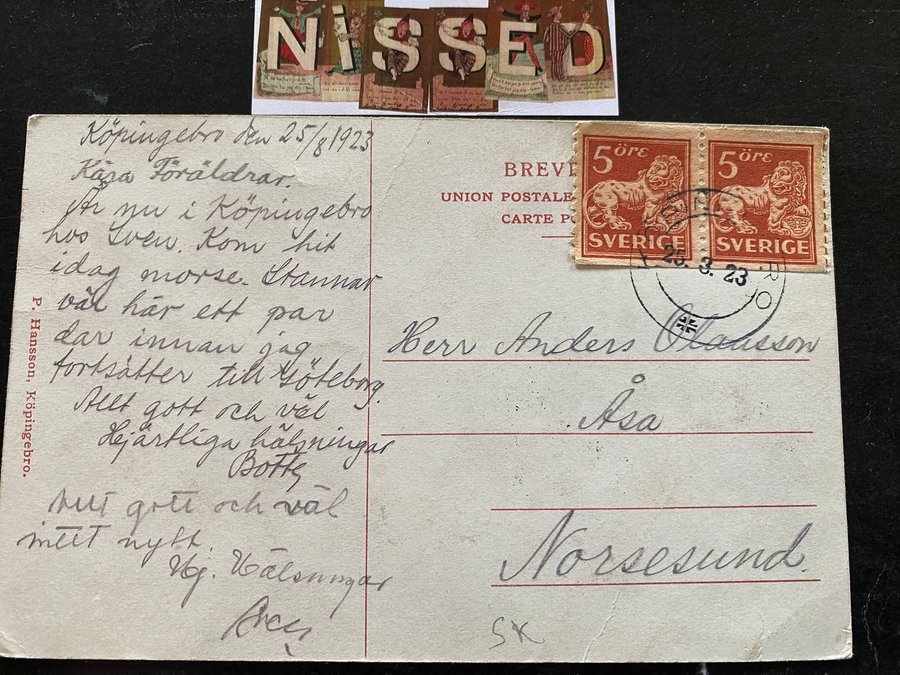 NISSED
Köpingebro den 25/8 1923
Kära Föräldrar.
Är nu i Köpingebro
hos Sven. Kom hit
idag morse. Stannar
väl här ett par
dar innan jag
fortsätter till Göteborg.
Allt gott och väl
Hjärtliga hälsningar
Allt gott och väl
intet nytt.
Hj. Hälsningar
P. Hansson, Köpingebro.
BREVE
UNION POSTALE
CARTE P
5 öre
SVERIGE
5 öre
SVERIGE
23
Herr Anders Olausson
Åsa
Norsesund.
SK